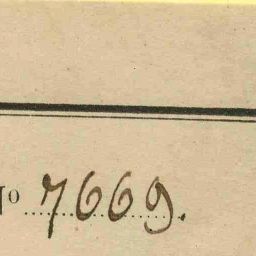 Nº 7669.